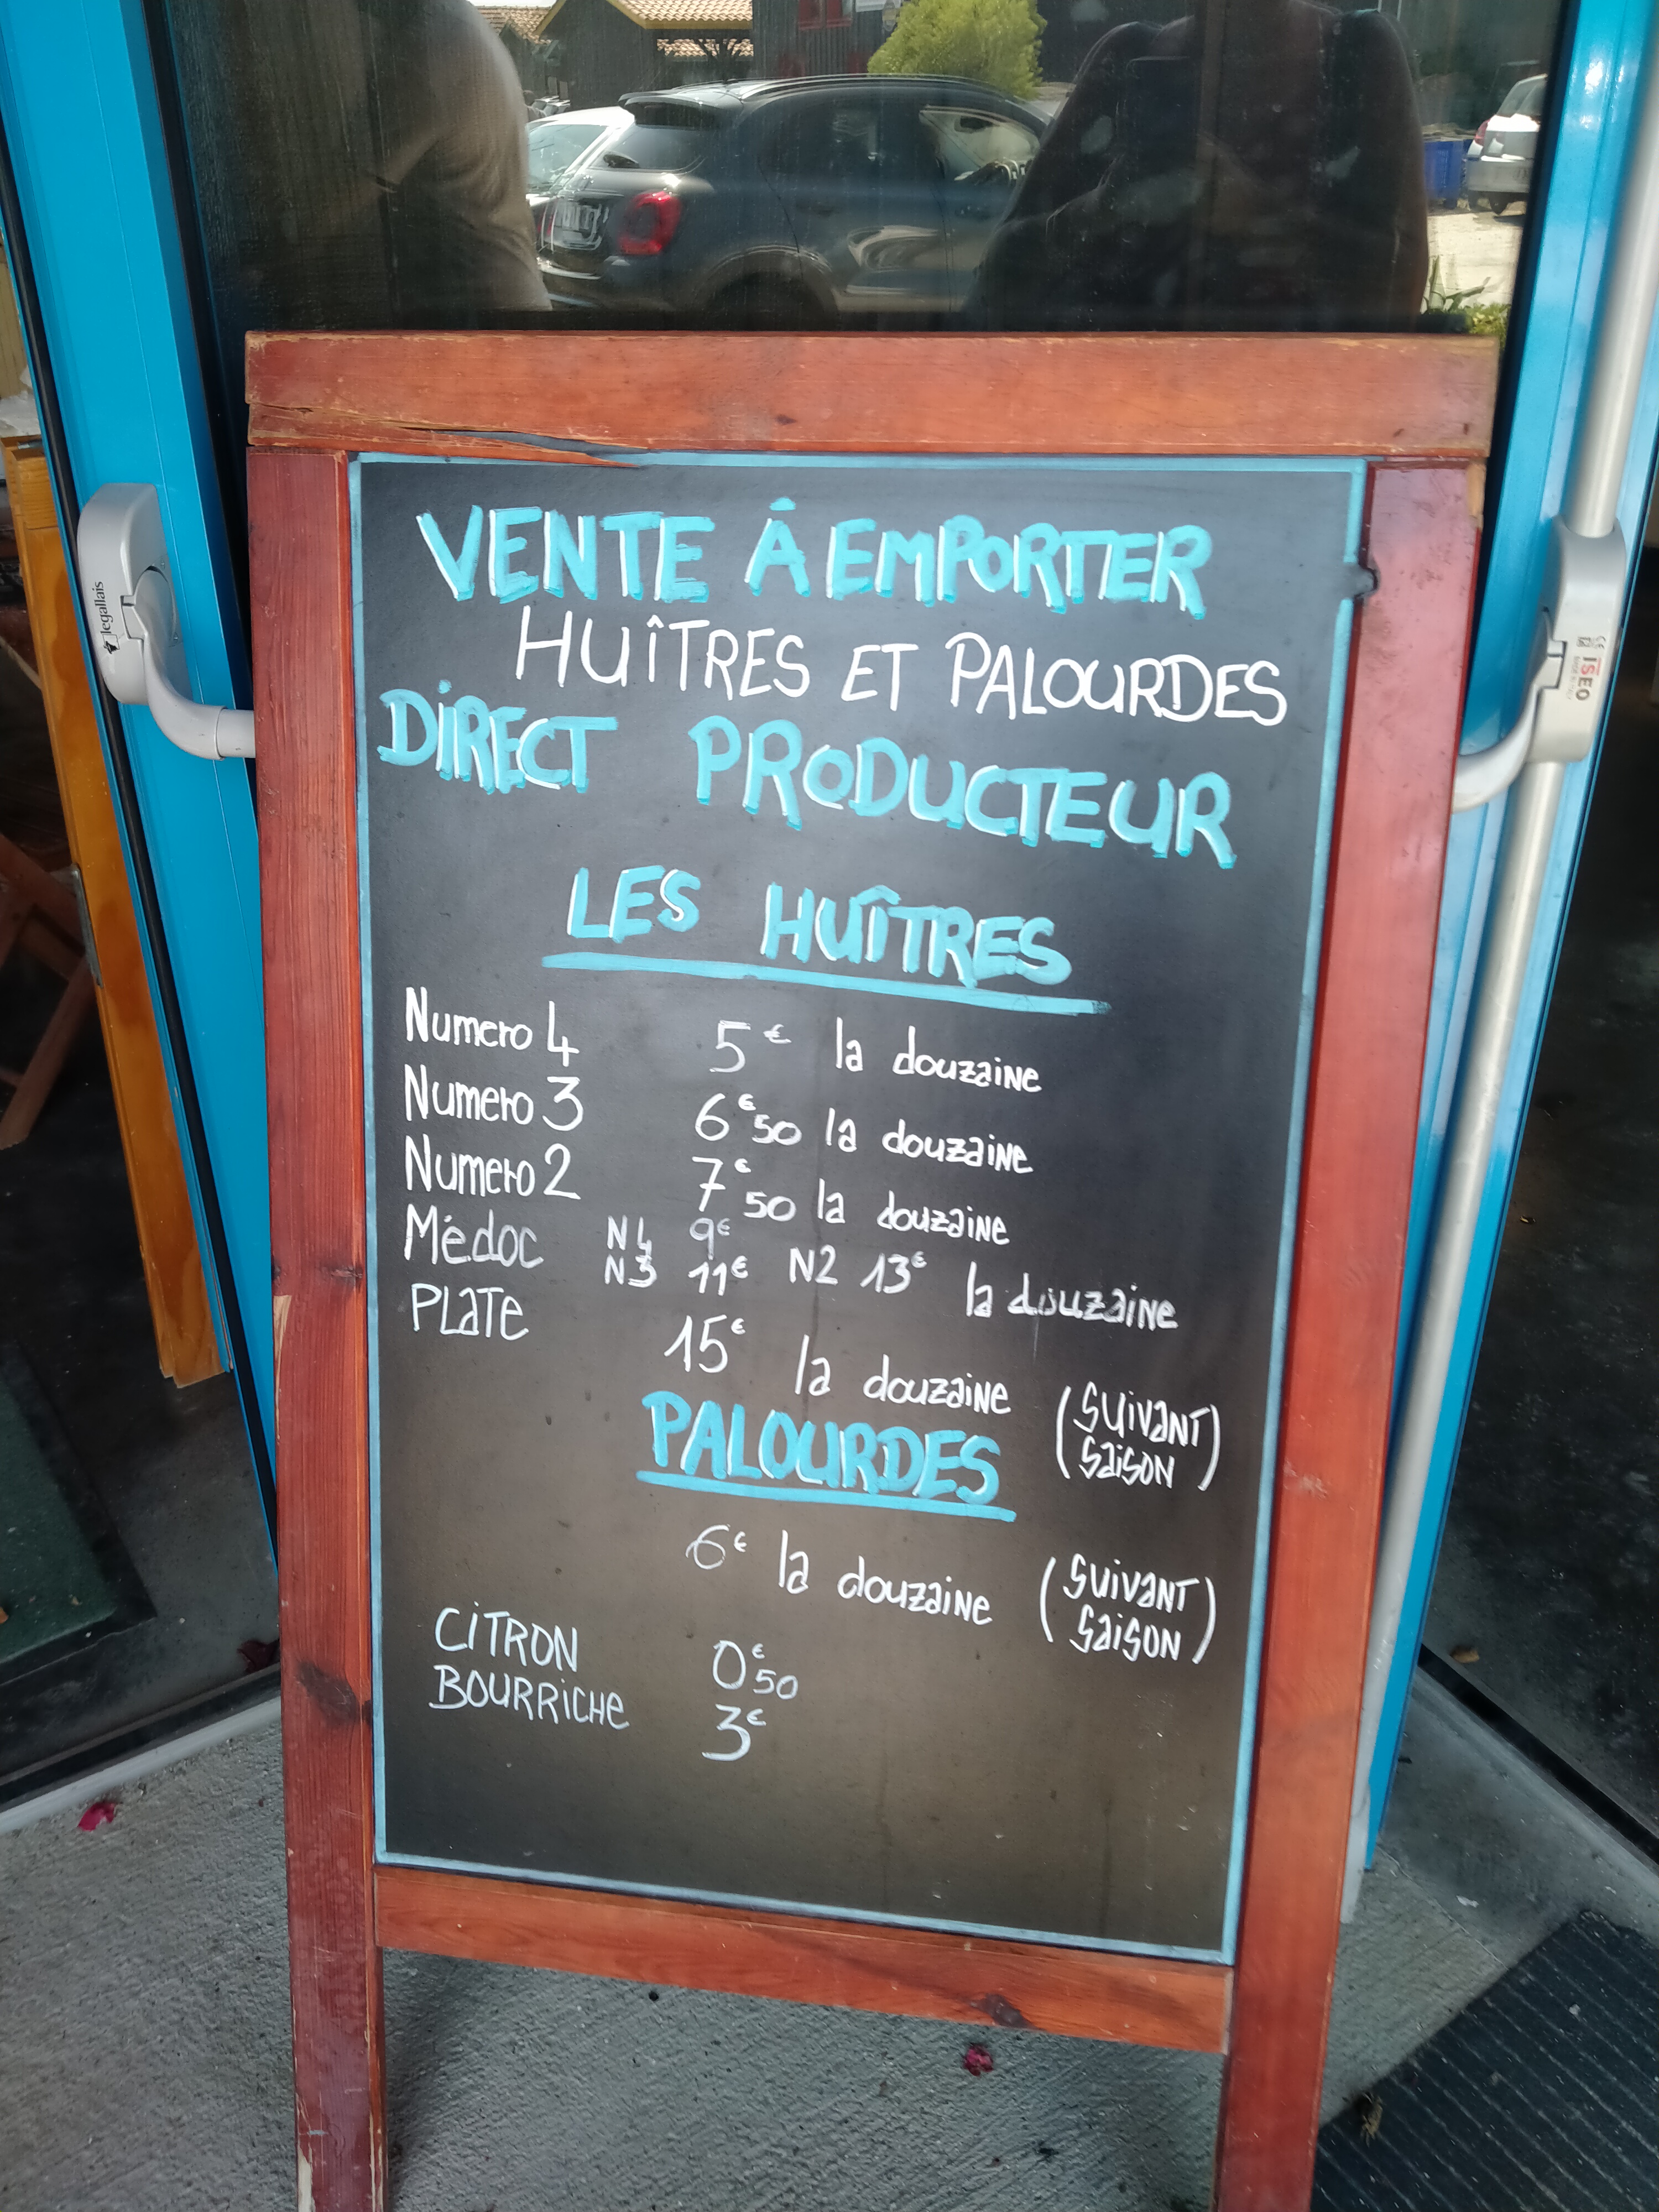 VENTE À EMPORTER
HUÎTRES ET PALOURDES
DIRECT PRODUCTEUR
LES HUÎTRES
Numero 4 5€ la douzaine
Numero 3 6€50 la douzaine
Numero 2 7€50 la douzaine
Médoc N4 9€
N3 11€ N2 13€ la douzaine
PLATE 15€ la douzaine (SUIVANT SAISON)
PALOURDES
6€ la douzaine (SUIVANT SAISON)
CITRON 0€50
BOURRICHE 3€
legallais
ISEO